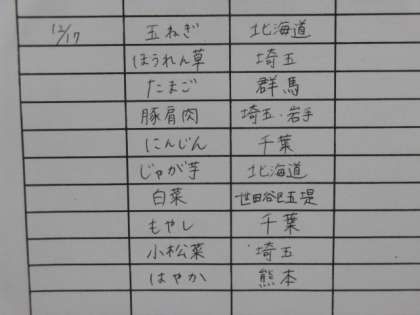 12/17 玉ねぎ 北海道
ほうれん草 埼玉
たまご 群馬
豚肩肉 埼玉・岩手
にんじん 千葉
じゃが芋 北海道
白菜 世田谷区玉堤
もやし 千葉
小松菜 埼玉
はやか 熊本